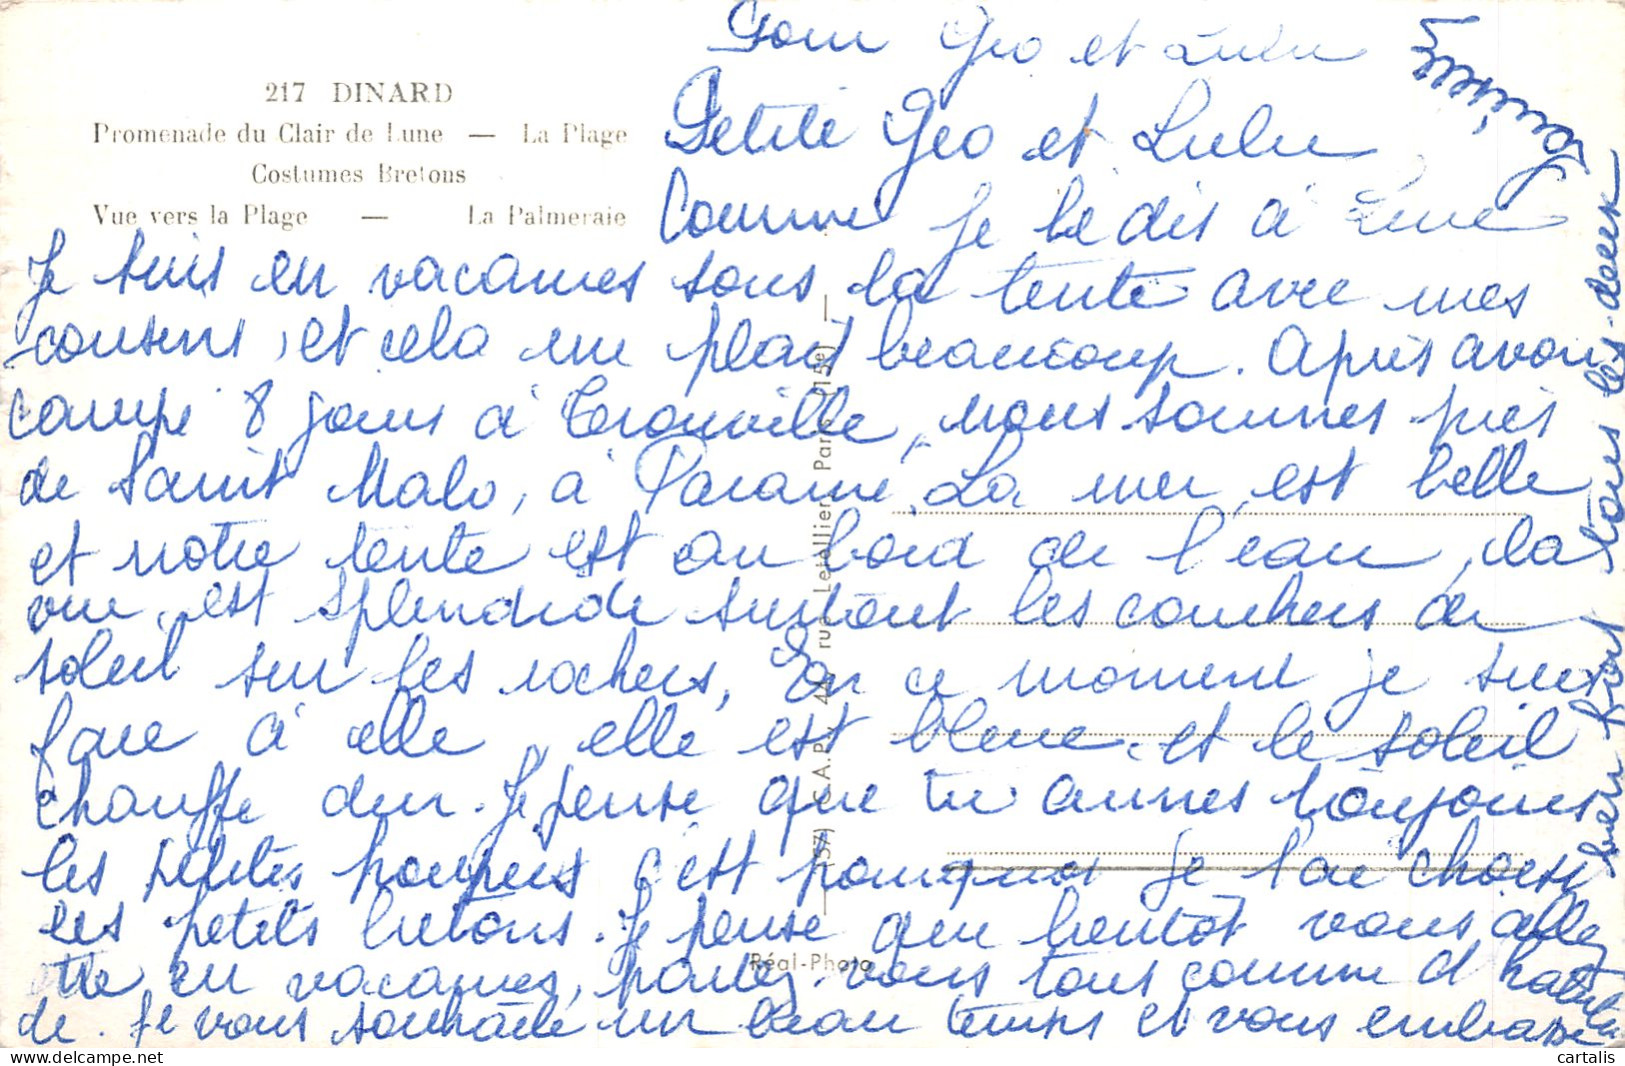 217 DINARD
Promenade du Clair de Lune — La Plage
Costumes Bretons
Vue vers la Plage — La Palmeraie
Pour Geo et Lulu
Petite Geo et Lulu
Comme je le dis à
Je suis en vacances sous la tente avec mes
cousens, et cela me plait beaucoup. Après avoir
campé 8 jours à Trouville, nous sommes près
de Saint Malo, à Paramé. La mer est belle
et notre tente est au bord de l'eau, la
vue est splendide surtout les couchers de
soleil sur les rochers, En ce moment je suis
face à elle, elle est bleue et le soleil
chauffe dur. Je pense que tu aimes toujours
les petites poupées c'est pourquoi je t'ai choisi
les petits bretons. Je pense que bientôt vous allez
être en vacances, partez-vous tous comme d'habitu
de. Je vous souhaite un beau temps et vous embrasse
bien fort tous les deux
(57) C.A.P. 44 rue Letellier Paris (15e) —
Réal-Photo
cartalis